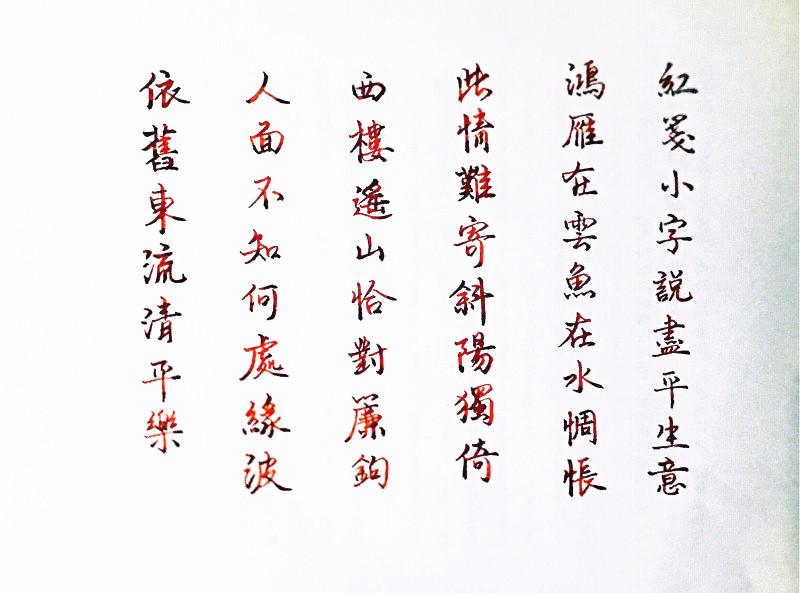 紅箋小字說盡平生意
鴻雁在雲魚在水惆悵
此情難寄斜陽獨倚
西樓遙山恰對簾鉤
人面不知何處緣波
依舊東流清平樂